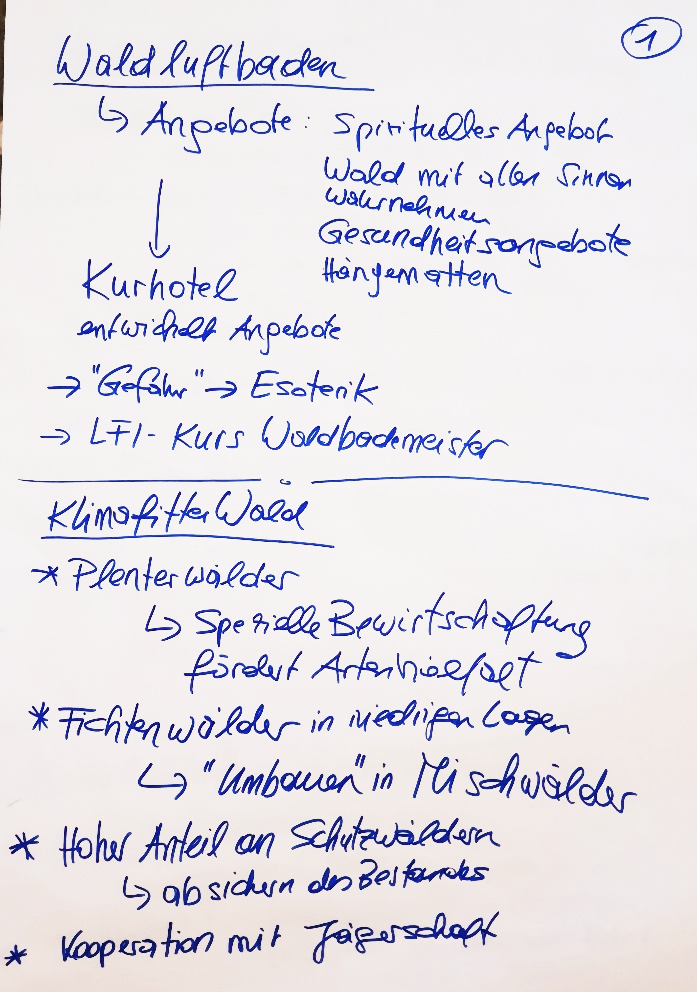 1
Waldluftbaden
↳ Angebote: Spirituelles Angebot
Wald mit allen Sinnen
wahrnehmen
Gesundheitsangebote
Hängematten
↓
Kurhotel
entwickelt Angebote
→ "Gefahr" → Esoterik
→ LFI-Kurs Waldbademeister
Klimafitter Wald
* Plenterwälder
↳ Spezielle Bewirtschaftung
fördert Artenvielfalt
* Fichtenwälder in niedrigen Lagen
↳ "Umbauen" in Mischwälder
* Hoher Anteil an Schutzwäldern
↳ absichern des Bestandes
* Kooperation mit Jägerschaft